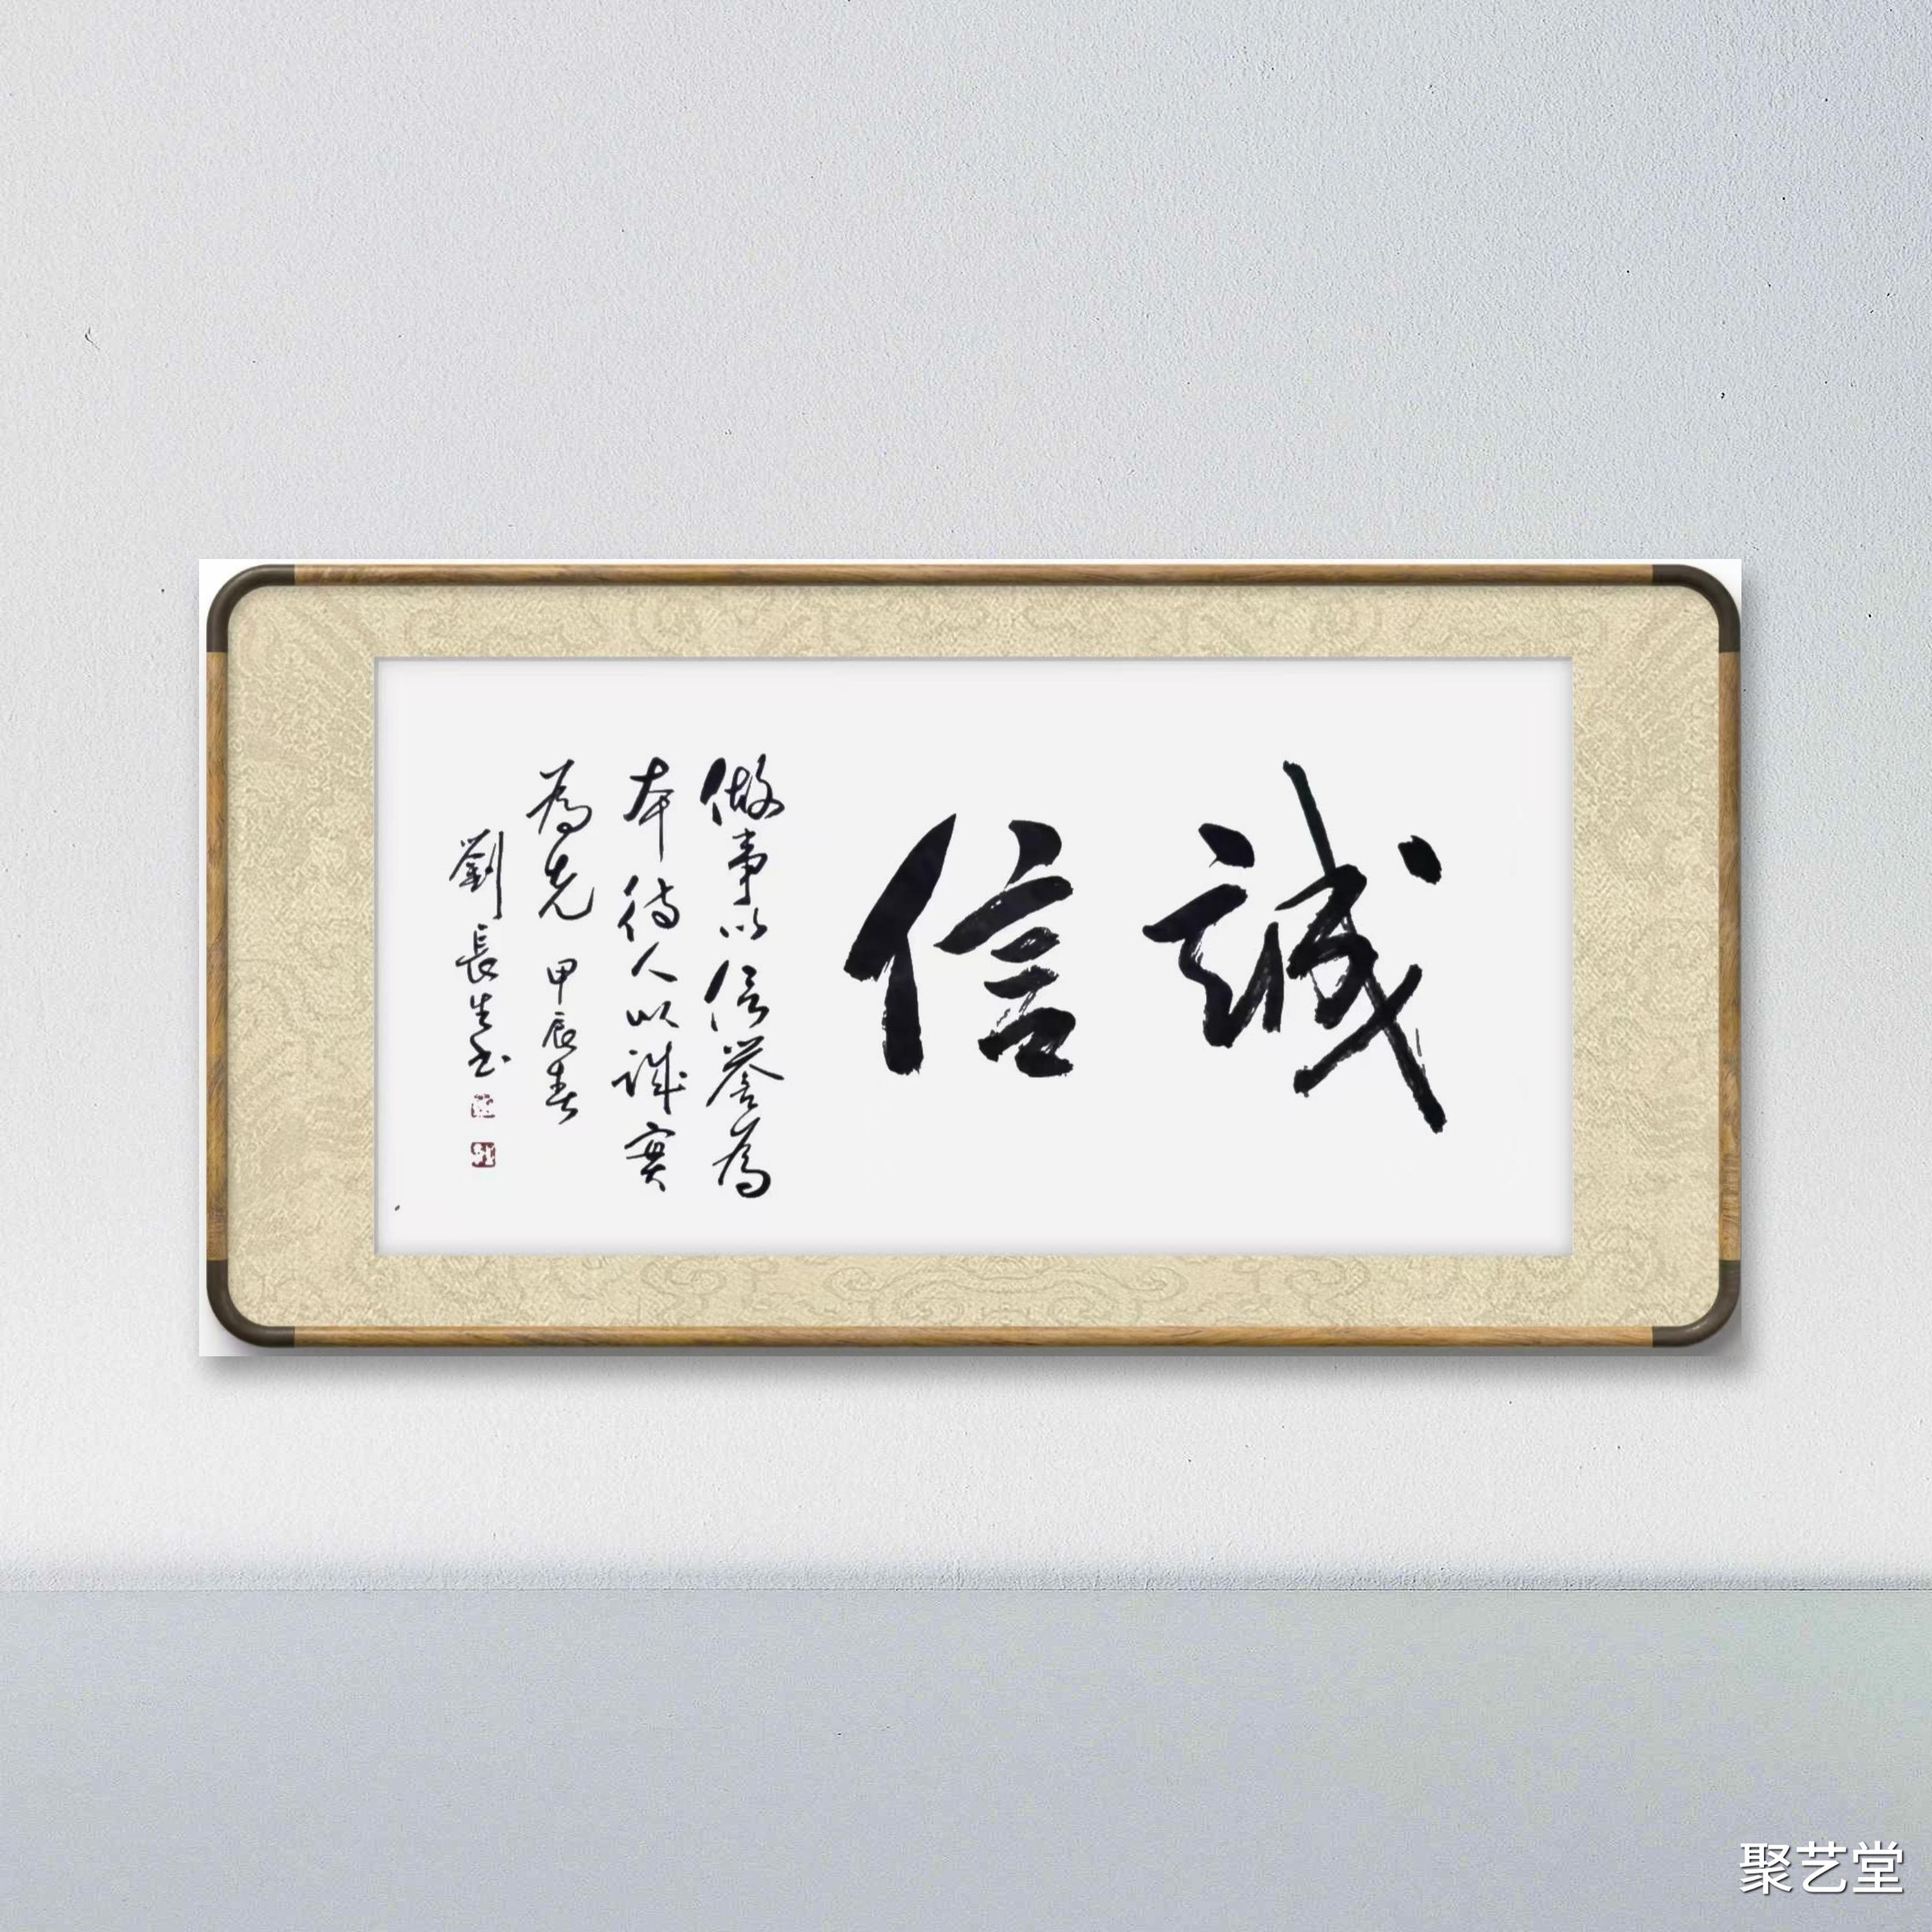 誠信
做事以信誉為
本待人以誠實
為先 甲辰春
劉長生书
聚艺堂